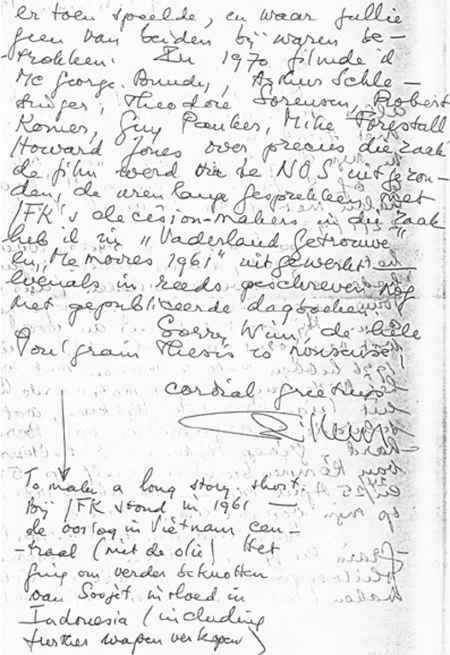 er toen speelde, en waar jullie
geen van beiden bij waren be-
trokken. In 1970 filmde ik
Mc George Bundy, Arthur Schle-
singer, Theodore Sorensen, Robert
Komer, Guy Pauker, Mike Forrestall
Howard Jones over precies die zaak
de film werd via de NOS uitgezon-
den, de uren lange gesprekken met
JFK's decision-makers in die zaak
heb ik in „Vaderland Getrouwe"
en „Memoires 1961" uitgewerkt en
evenals in reeds geschreven nog
niet gepubliceerde dagboeken.
Sorry Wim, de hele
Poulgrain Thesis is nonsense.
cordial greetings
Willem
To make a long story short:
Bij JFK stond in 1961 —
de oorlog in Vietnam cen-
-traal (niet de olie) Het
ging om verder beknotten
van Sovjet invloed in
Indonesia (including
further wapen verkopen)